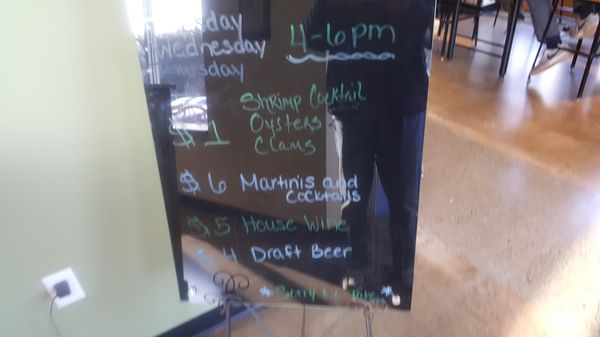 sday
Wednesday 4-6pm
Shrimp Cocktail
$1 Oysters
Clams
$6 Martinis and
Cocktails
$5 House Wine
4 Draft Beer